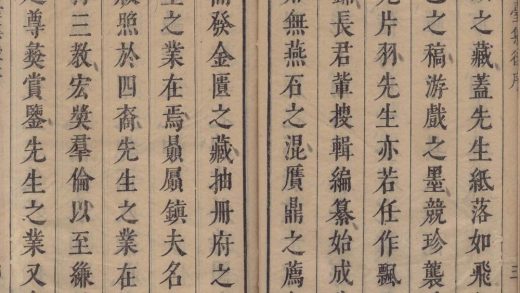 之藏蓋先生紙落如飛
之稿游戲之墨競珍襲
片羽先生亦若任作飄
長君輩搜輯編纂始成
無燕石之混贋鼎之薦
發金匱之藏抽冊府之
之業在焉贔屭鎮夫名
照於四裔先生之業在
三教宏奬羣倫以至縑
尊彝賞鑒先生之業又